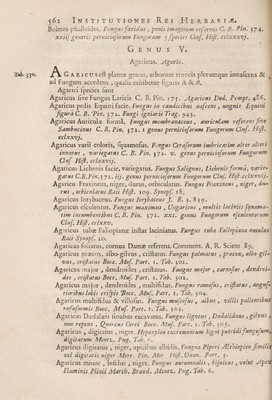 562 INSTITUTIONES REI HERBARIÆ.
Boletus phalloides. Fungus fœtidus, penis imaginem referens C. B. Pin. 374.
xxiij generis perniciosorum Fungorum 3 species Cluf. Hist. cclxxxvj.
GENUS V.
Agaricus. Agaric.
Tab. 330. AGARICUS est plantæ genus, arborum truncis plerumque innascens &
ad Fungum accedens, qualis exhibetur figuris A & B.
Agarici species sunt
Agaricus sive Fungus Laricis C. B. Pin. 375. Agaricus Dod. Pempt. 486.
Agaricus pedis Equini facie. Fungus in caudicibus nascens, unguis Equini
figurâ C. B. Pin. 372. Fungi igniarii Trag. 943.
Agaricus Auriculæ formâ. Fungus membranaceus, auriculam referens sive
Sambucinus C. B. Pin. 372. 1 genus perniciosorum Fungorum Cluf. Hist.
cclxxvj.
Agaricus varii coloris, squamosus. Fungus Cerasorum imbricatim alter alteri
innatus, variegatus C. B. Pin. 372. v. genus perniciosorum Fungorum
Cluf. Hist. cclxxvij.
Agaricus Lichenis facie, variegatus. Fungus Seligneus, Lichenis formâ, varie-
gatus C.B.Pin. 372. iij. genus perniciosorum Fungorum Cluf. Hist. cclxxvij.
Agaricus Fraxineus, niger, durus, orbiculatus. Fungus Fraxineus, niger, du-
rus, orbiculatus Raii Hist. 109. Synops. 18.
Agaricus intybaceus. Fungus Intybaceus J. B. 3. 839.
Agaricus esculentus. Fungus maximus, Ungaricus, multis laciniis squama-
tim incumbentibus C. B. Pin. 371. xxi. genus Fungorum esculentorum
Cluf. Hist. cclxxv.
Agaricus tubæ Fallopianæ instar laciniatus. Fungus tuba Fallopiana æmulus
Raii Synop. 20.
Agaricus foliatus, cornua Damæ referens. Comment. A. R. Scient. 89.
Agaricus palmatus, albo-gilvus, cristatus. Fungus palmatus, præcox, albo-gil-
vus, cristatus Bocc. Mus. Part. 1. Tab. 302.
Agaricus major, dendroides, cristatus. Fungus major, carnosus, dendroi-
des, cristatus Bocc. Mus. Part. 1. Tab. 302.
Agaricus major, dendroides, multifidus. Fungus ramosus, cristatus, angus-
tioribus lobis crispis Bocc. Mus. Part. 1. Tab. 304.
Agaricus multifidus & villosus. Fungus muscosus, albus, villis pallentibus
rufusformis Bocc. Mus. Part. 1. Tab. 303.
Agaricus Dædaleis sinubus excavatus. Fungus ligneus, Dædalicus, gilvus,
non repens, Quercus Cerri Bocc. Mus. Part. 1. Tab. 305.
Agaricus, digitatus, niger. Hypoxylon excrementum ligni putridi fungosum,
digitatum Mentz. Pug. Tab. 6.
Agaricus digitatus, niger, apicibus albidis. Fungus Piperi Æthiopico similis
vel digitatis niger Mor. Hist. Oxon. Part. 3.
Agaricus minor, bifidus, niger. Fungus autumnalis, bifidus, volut Apex
Flaminis Plinii March. Brand. Mentz. Pug. Tab. 6.